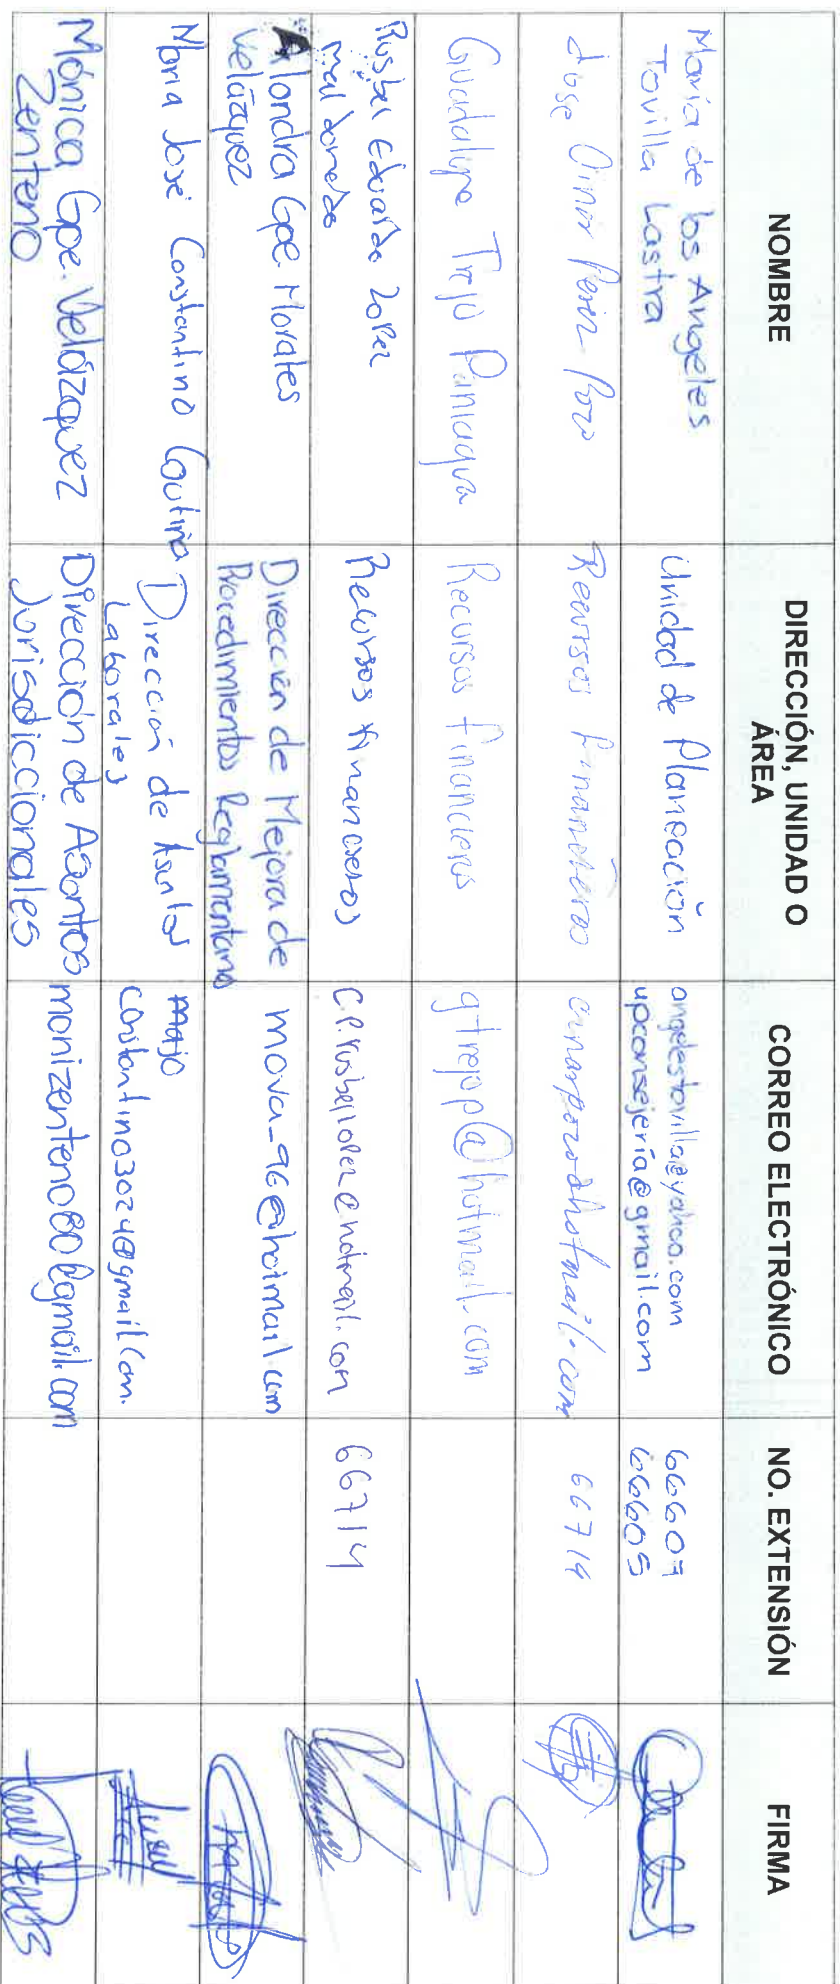 NOMBRE
DIRECCIÓN, UNIDAD O
ÁREA
CORREO ELECTRÓNICO
NO. EXTENSIÓN
FIRMA
María de los Angeles
Tovilla Lastra
Unidad de Planeación
angelestovilla@yahoo.com
upconsejería@gmail.com
66607
66605
Jose Omar Perez Pozo
Recursos Financieros
66714
Guadalupe Trejo Paniagua
Recursos financieros
gtrejop@hotmail.com
Rusbel Eduardo Lopez
maldonado
Recursos financieros
C.P.rusbellopez@hotmail.com
66714
Alondra Gpe Morales
Velázquez
Dirección de Mejora de
Procedimientos Reglamentarios
mova_96@hotmail.com
Maria José Constantino Coutiño
Dirección de Asuntos
Laborales
majo
constantino3024@gmail.com.
Mónica Gpe. Velázquez
Zenteno
Dirección de Asuntos
Jurisdiccionales
monizenteno80@gmail.com